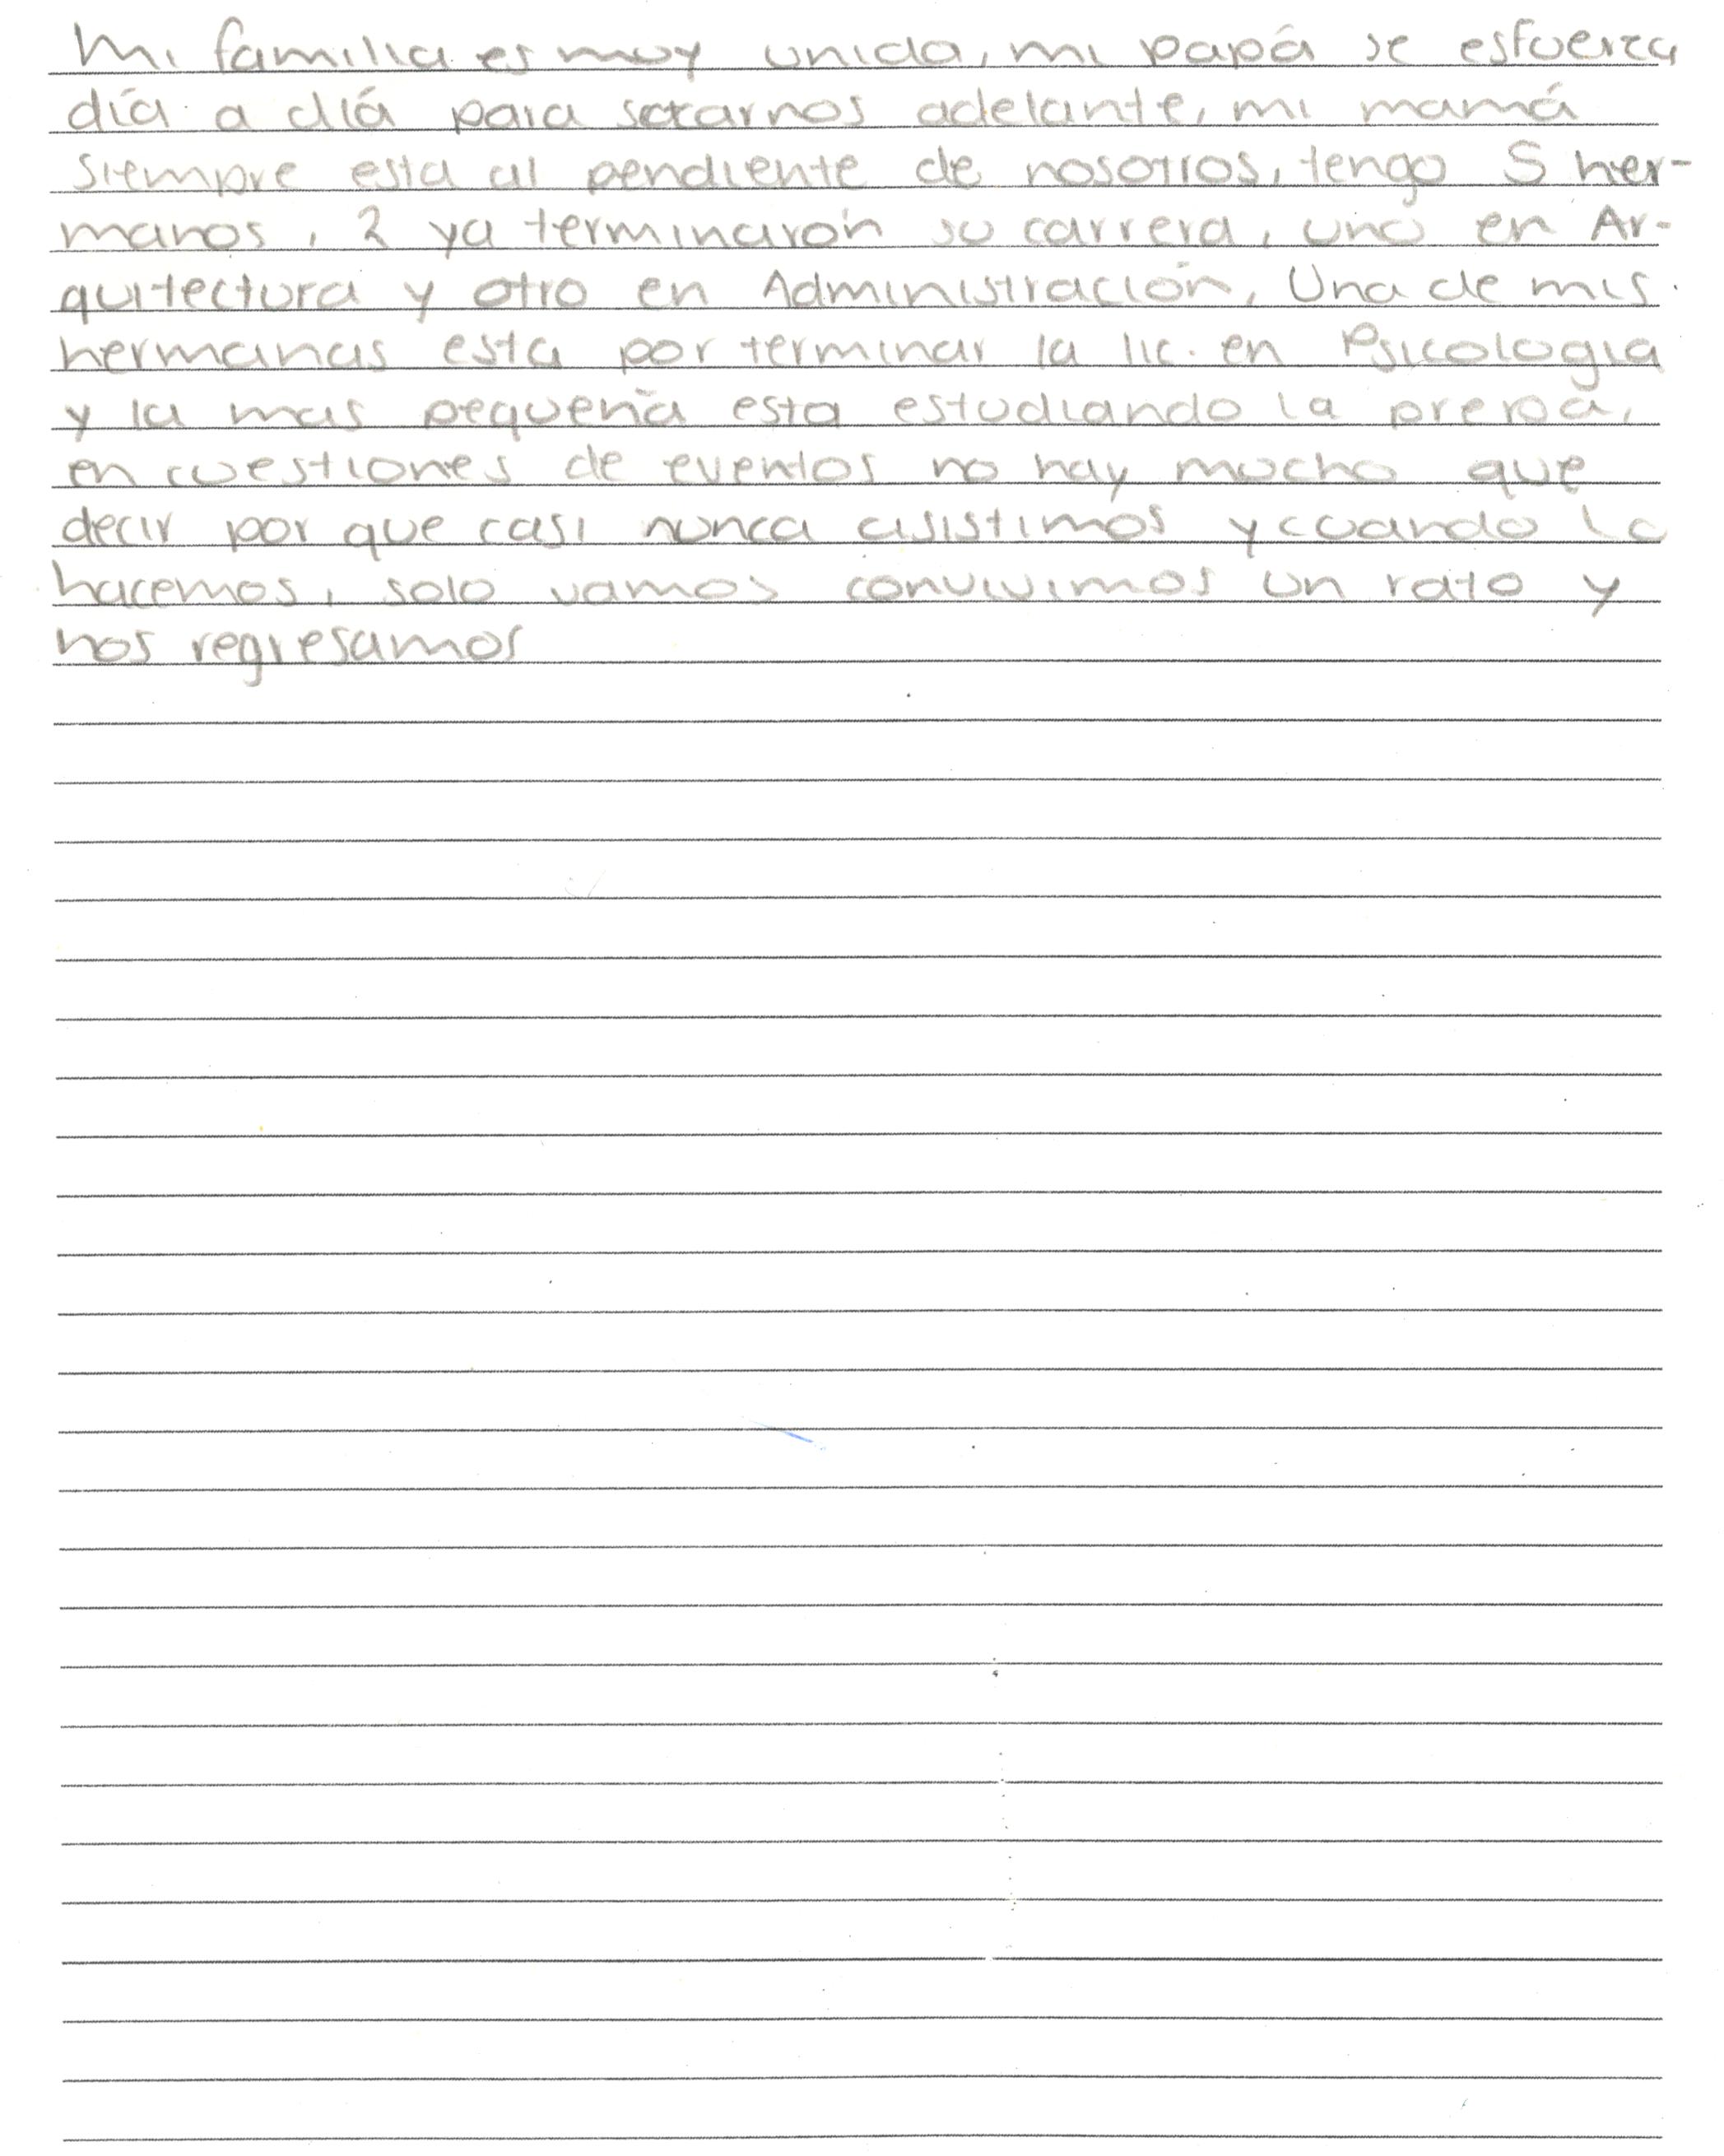 Mi familia es muy unida, mi papá se esfuerza
día a día para sacarnos adelante, mi mamá
siempre esta al pendiente de nosotros, tengo 5 her-
manos, 2 ya terminarón su carrera, uno en Ar-
quitectura y otro en Administración, Una de mis
hermanas esta por terminar la lic. en Psicologia
y la mas pequeña esta estudiando la prepa,
en cuestiones de eventos no hay mucho que
decir por que casi nunca asistimos y cuando lo
hacemos, solo vamos convivimos un rato y
nos regresamos